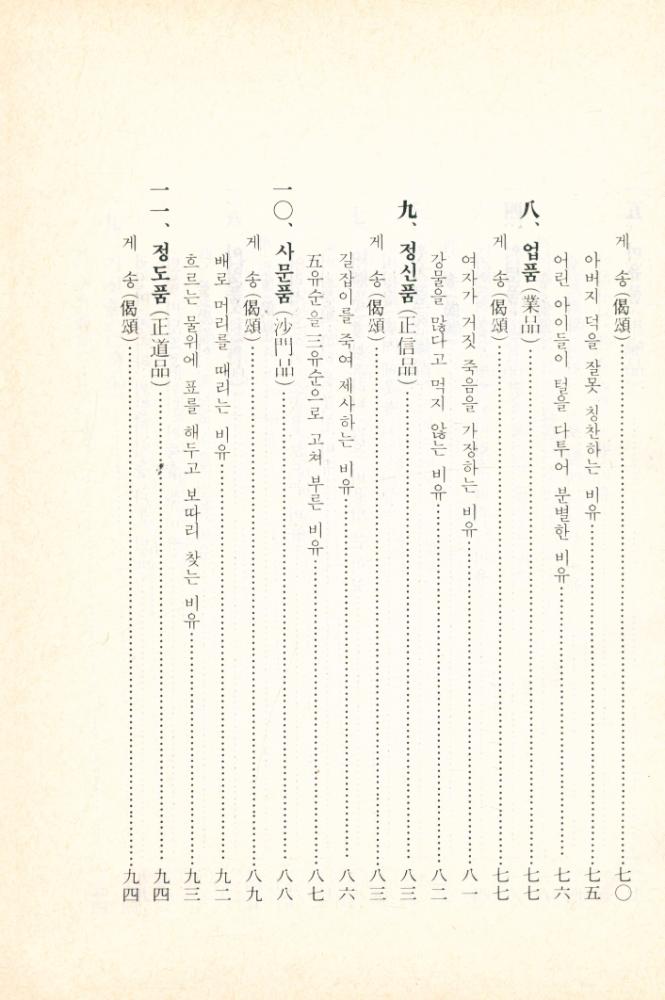 게 송(偈頌)……七〇
아버지 덕을 잘못 칭찬하는 비유……七五
어린 아이들이 털을 다투어 분별한 비유……七六
八、 업품(業品)……七七
게 송(偈頌)……七七
여자가 거짓 죽음을 가장하는 비유……八一
강물을 많다고 먹지 않는 비유……八二
九、 정신품(正信品)……八三
게 송(偈頌)……八三
길잡이를 죽여 제사하는 비유……八六
五유순을 三유순으로 고쳐 부른 비유……八七
一〇、 사문품(沙門品)……八八
게 송(偈頌)……八九
배로 머리를 때리는 비유……九二
흐르는 물위에 표를 해두고 보따리 찾는 비유……九三
一一、 정도품(正道品)……九四
게 송(偈頌)……九四